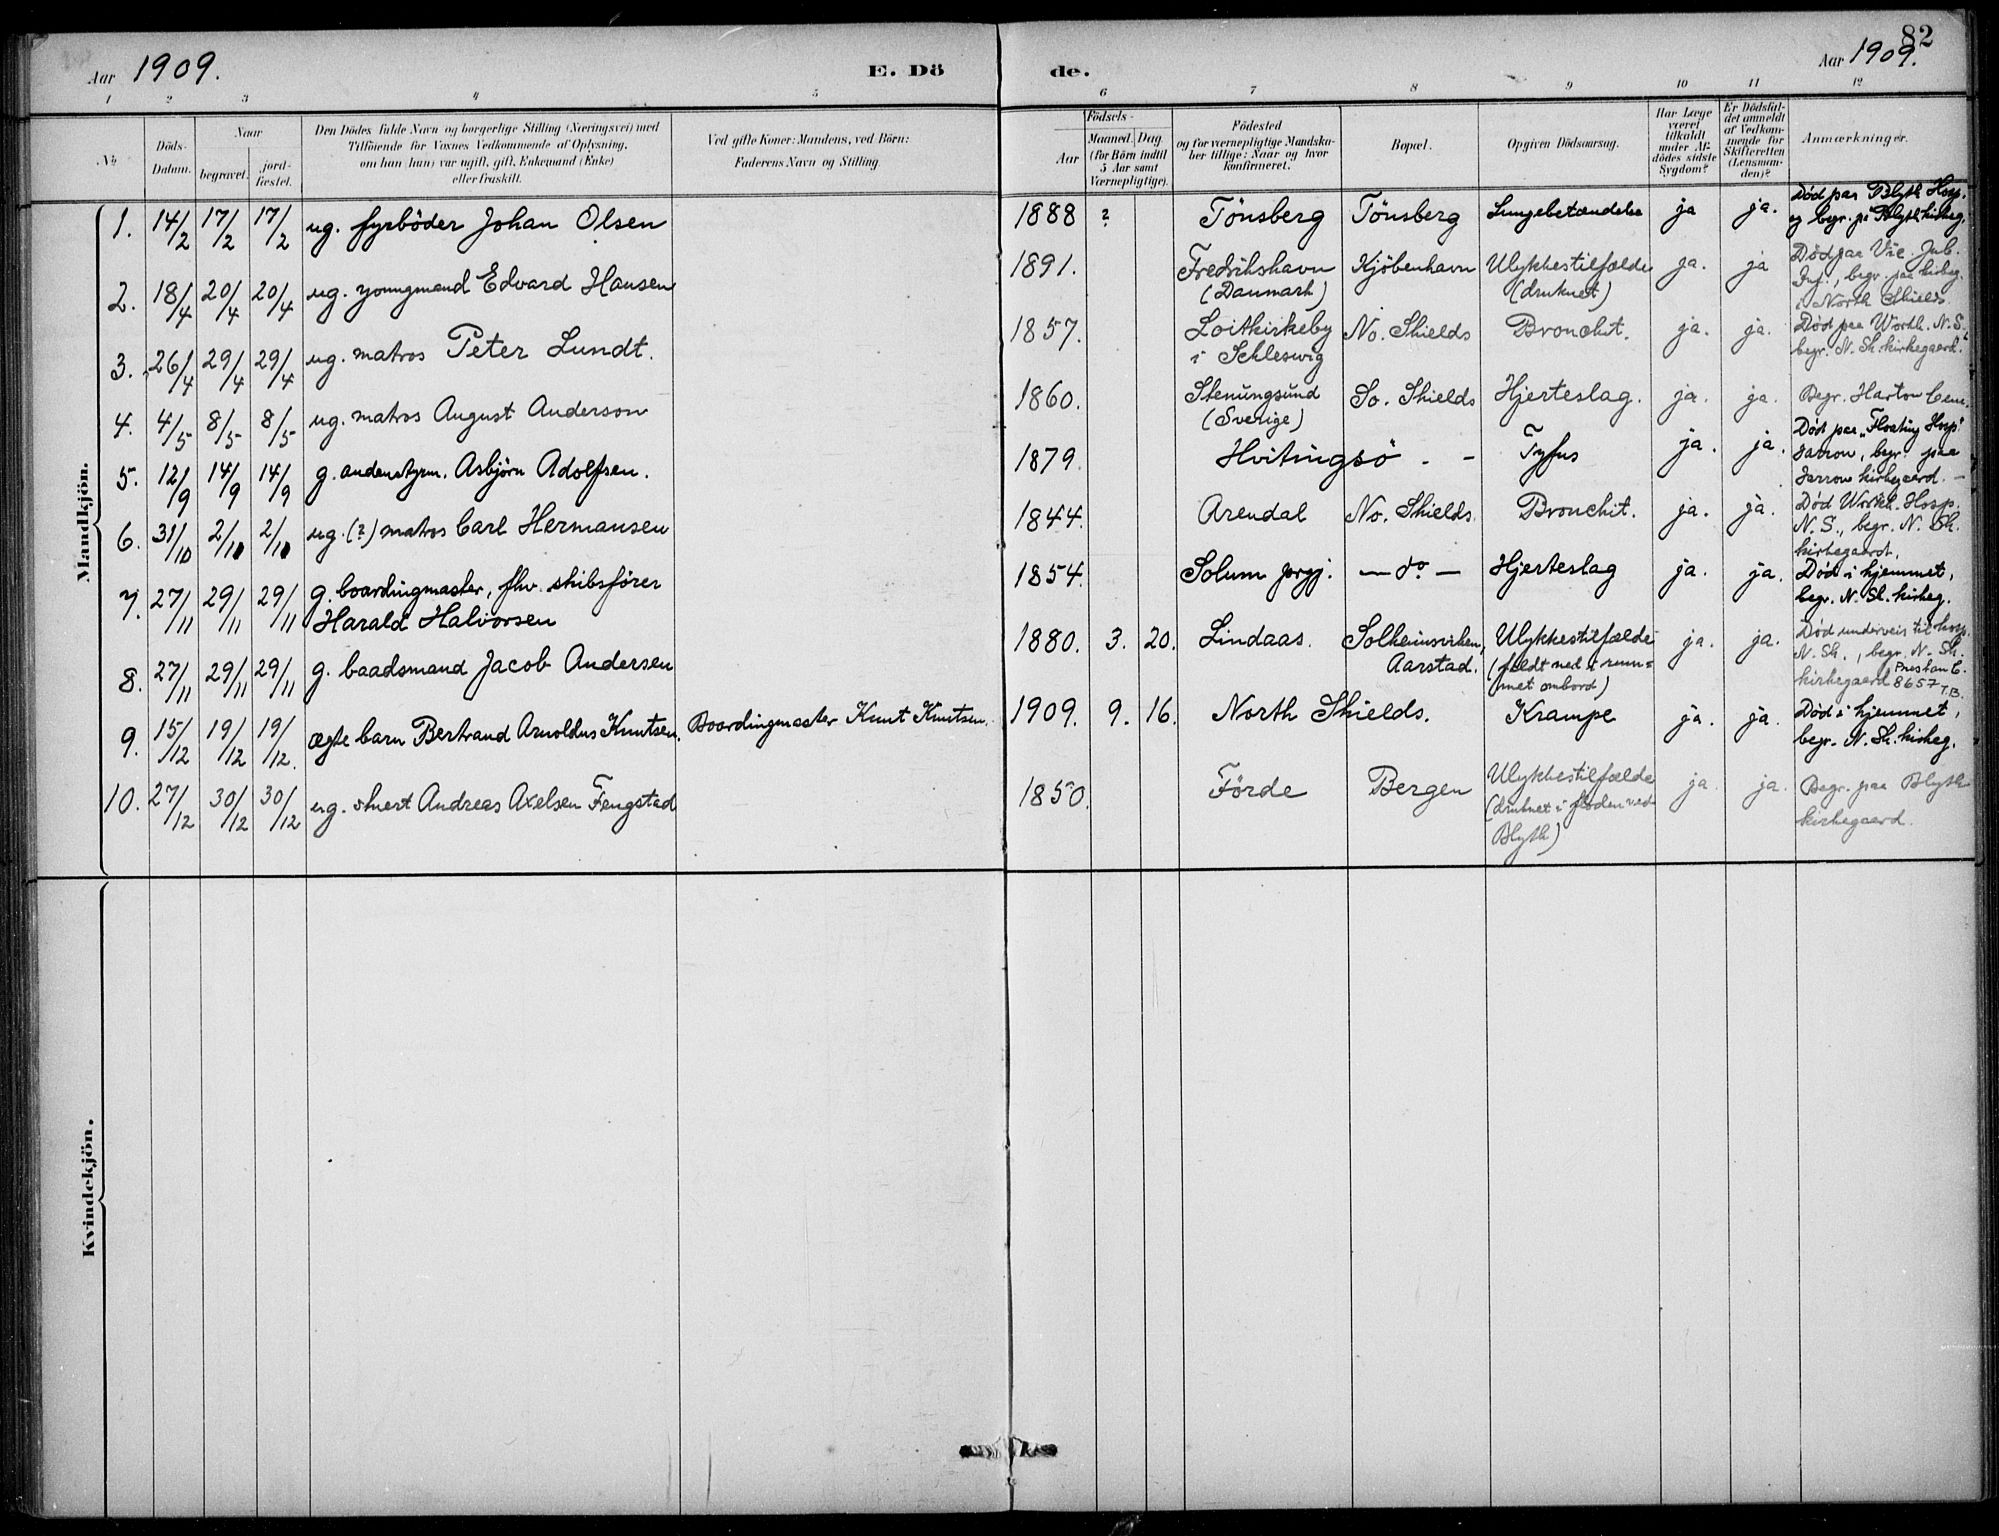 82
Aar 1909.
E. Dö
de.
Aar 1909.
1 2 3 4 5 6 7 8 9 10 11 12
No
Döds-
Datum.
Naar
begravet.
jord-
fæstet.
Den Dödes fulde Navn og borgerlige Stilling (Næringsvei) med
Tilföiende for Voxnes Vedkommende af Oplysning,
om han (hun) var ugift, gift, Enkemand (Enke)
eller fraskilt.
Ved gifte Koner: Mandens, ved Börn:
Faderens Navn og Stilling.
Födsels-
Aar
Maaned. Dag
(for Börn indtil
5 Aar samt
Værnepligtige).
Födested
og for værnepligtige Mandska-
ber tillige: Naar og hvor
konfirmeret.
Bopæl.
Opgiven Dödsaarsag.
Har Læge
været
tilkaldt
under Af-
dödes sidste
Sygdom?
Er Dödsfal-
det anmeldt
af Vedkom-
mende for
Skifteretten
(Lensman-
den)?
Anmærkninger.
Mandkjön.
1. 14/2 17/2 17/2 ug. fyrböder Johan Olsen 1888 ? Tönsberg Tönsberg Lungebetændelse ja ja. Död paa Blyth Hosp.
og begr. på Blyth kirkeg.
2. 18/4 20/4 20/4 ug. youngmand Edvard Hansen 1891. Fredrikshavn Kjöbenhavn Ulykkestilfælde ja. ja Död paa Vic. Jub.
(Danmark) (druknet) Inf., begr. paa kirkeg.
i North Shields.
3. 26/4 29/4 29/4 ug. matros Peter Lundt. 1857. Loitkirkeby No. Shields Bronchit. ja. ja. Död paa Workh. N. S.
i Schleswig begr. N. Sh. kirkegaard.
4. 4/5 8/5 8/5 ug. matros August Anderson 1860. Stenungsund So. Shields Hjerteslag. ja. ja. Begr. Harton Cem.
(Sverige)
5. 12/9 14/9 14/9 g. andenstyrm. Asbjörn Adolfsen. 1879. Hvitingsö - - Tyfus ja. ja. Död paa "Floating Hosp."
Jarrow, begr. paa
Jarrow kirkegaard. -
6. 31/10 2/11 2/11 ug. (?) matros Carl Hermansen 1844. Arendal No. Shields. Bronchit. ja. ja. Död Workh. Hosp.
N. S., begr. N. Sh.
kirkegaard.
7. 27/11 29/11 29/11 g. boardingmaster, fhv. skibsförer 1854. Solum prgj. — do — Hjerteslag ja. ja. Död i hjemmet,
Harald Halvorsen begr. N. Sh. kirkeg.
8. 27/11 29/11 29/11 g. baadsmand Jacob Andersen 1880. 3. 20. Lindaas. Solheimsviken, Ulykkestilfælde ja. ja. Död underveis til hosp.
Aarstad. (faldt ned i rum- N. Sh., begr. N. Sh.
met ombord) kirkegaard Preston C.
8657 T.B.
9. 15/12 19/12 19/12. ægte barn Bertrand Arnoldus Knutsen. Boardingmaster Knut Knutsen. 1909. 9. 16. North Shields. Krampe ja. ja. Död i hjemmet,
begr. N. Sh. kirkeg.
10. 27/12 30/12 30/12 ug. stuert Andreas Axelsen Fengstad 1850. Förde Bergen Ulykkestilfælde ja. ja. Begr. paa Blyth
(druknet i floden ved kirkegaard.
Blyth)
Kvindekjön.